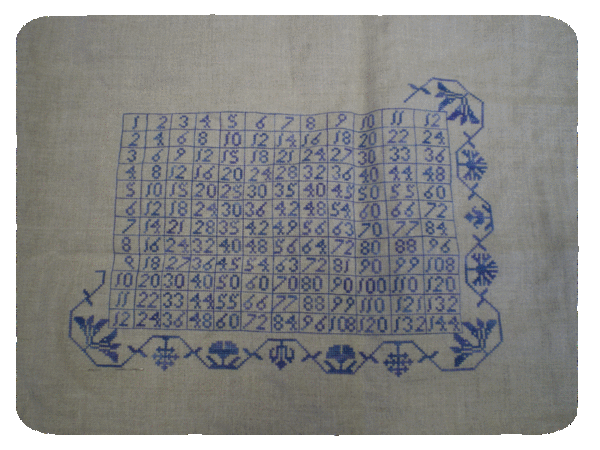 1 2 3 4 5 6 7 8 9 10 11 12
2 4 6 8 10 12 14 16 18 20 22 24
3 6 9 12 15 18 21 24 27 30 33 36
4 8 12 16 20 24 28 32 36 40 44 48
5 10 15 20 25 30 35 40 45 50 55 60
6 12 18 24 30 36 42 48 54 60 66 72
7 14 21 28 35 42 49 56 63 70 77 84
8 16 24 32 40 48 56 64 72 80 88 96
9 18 27 36 45 54 63 72 81 90 99 108
10 20 30 40 50 60 70 80 90 100 110 120
11 22 33 44 55 66 77 88 99 110 121 132
12 24 36 48 60 72 84 96 108 120 132 144